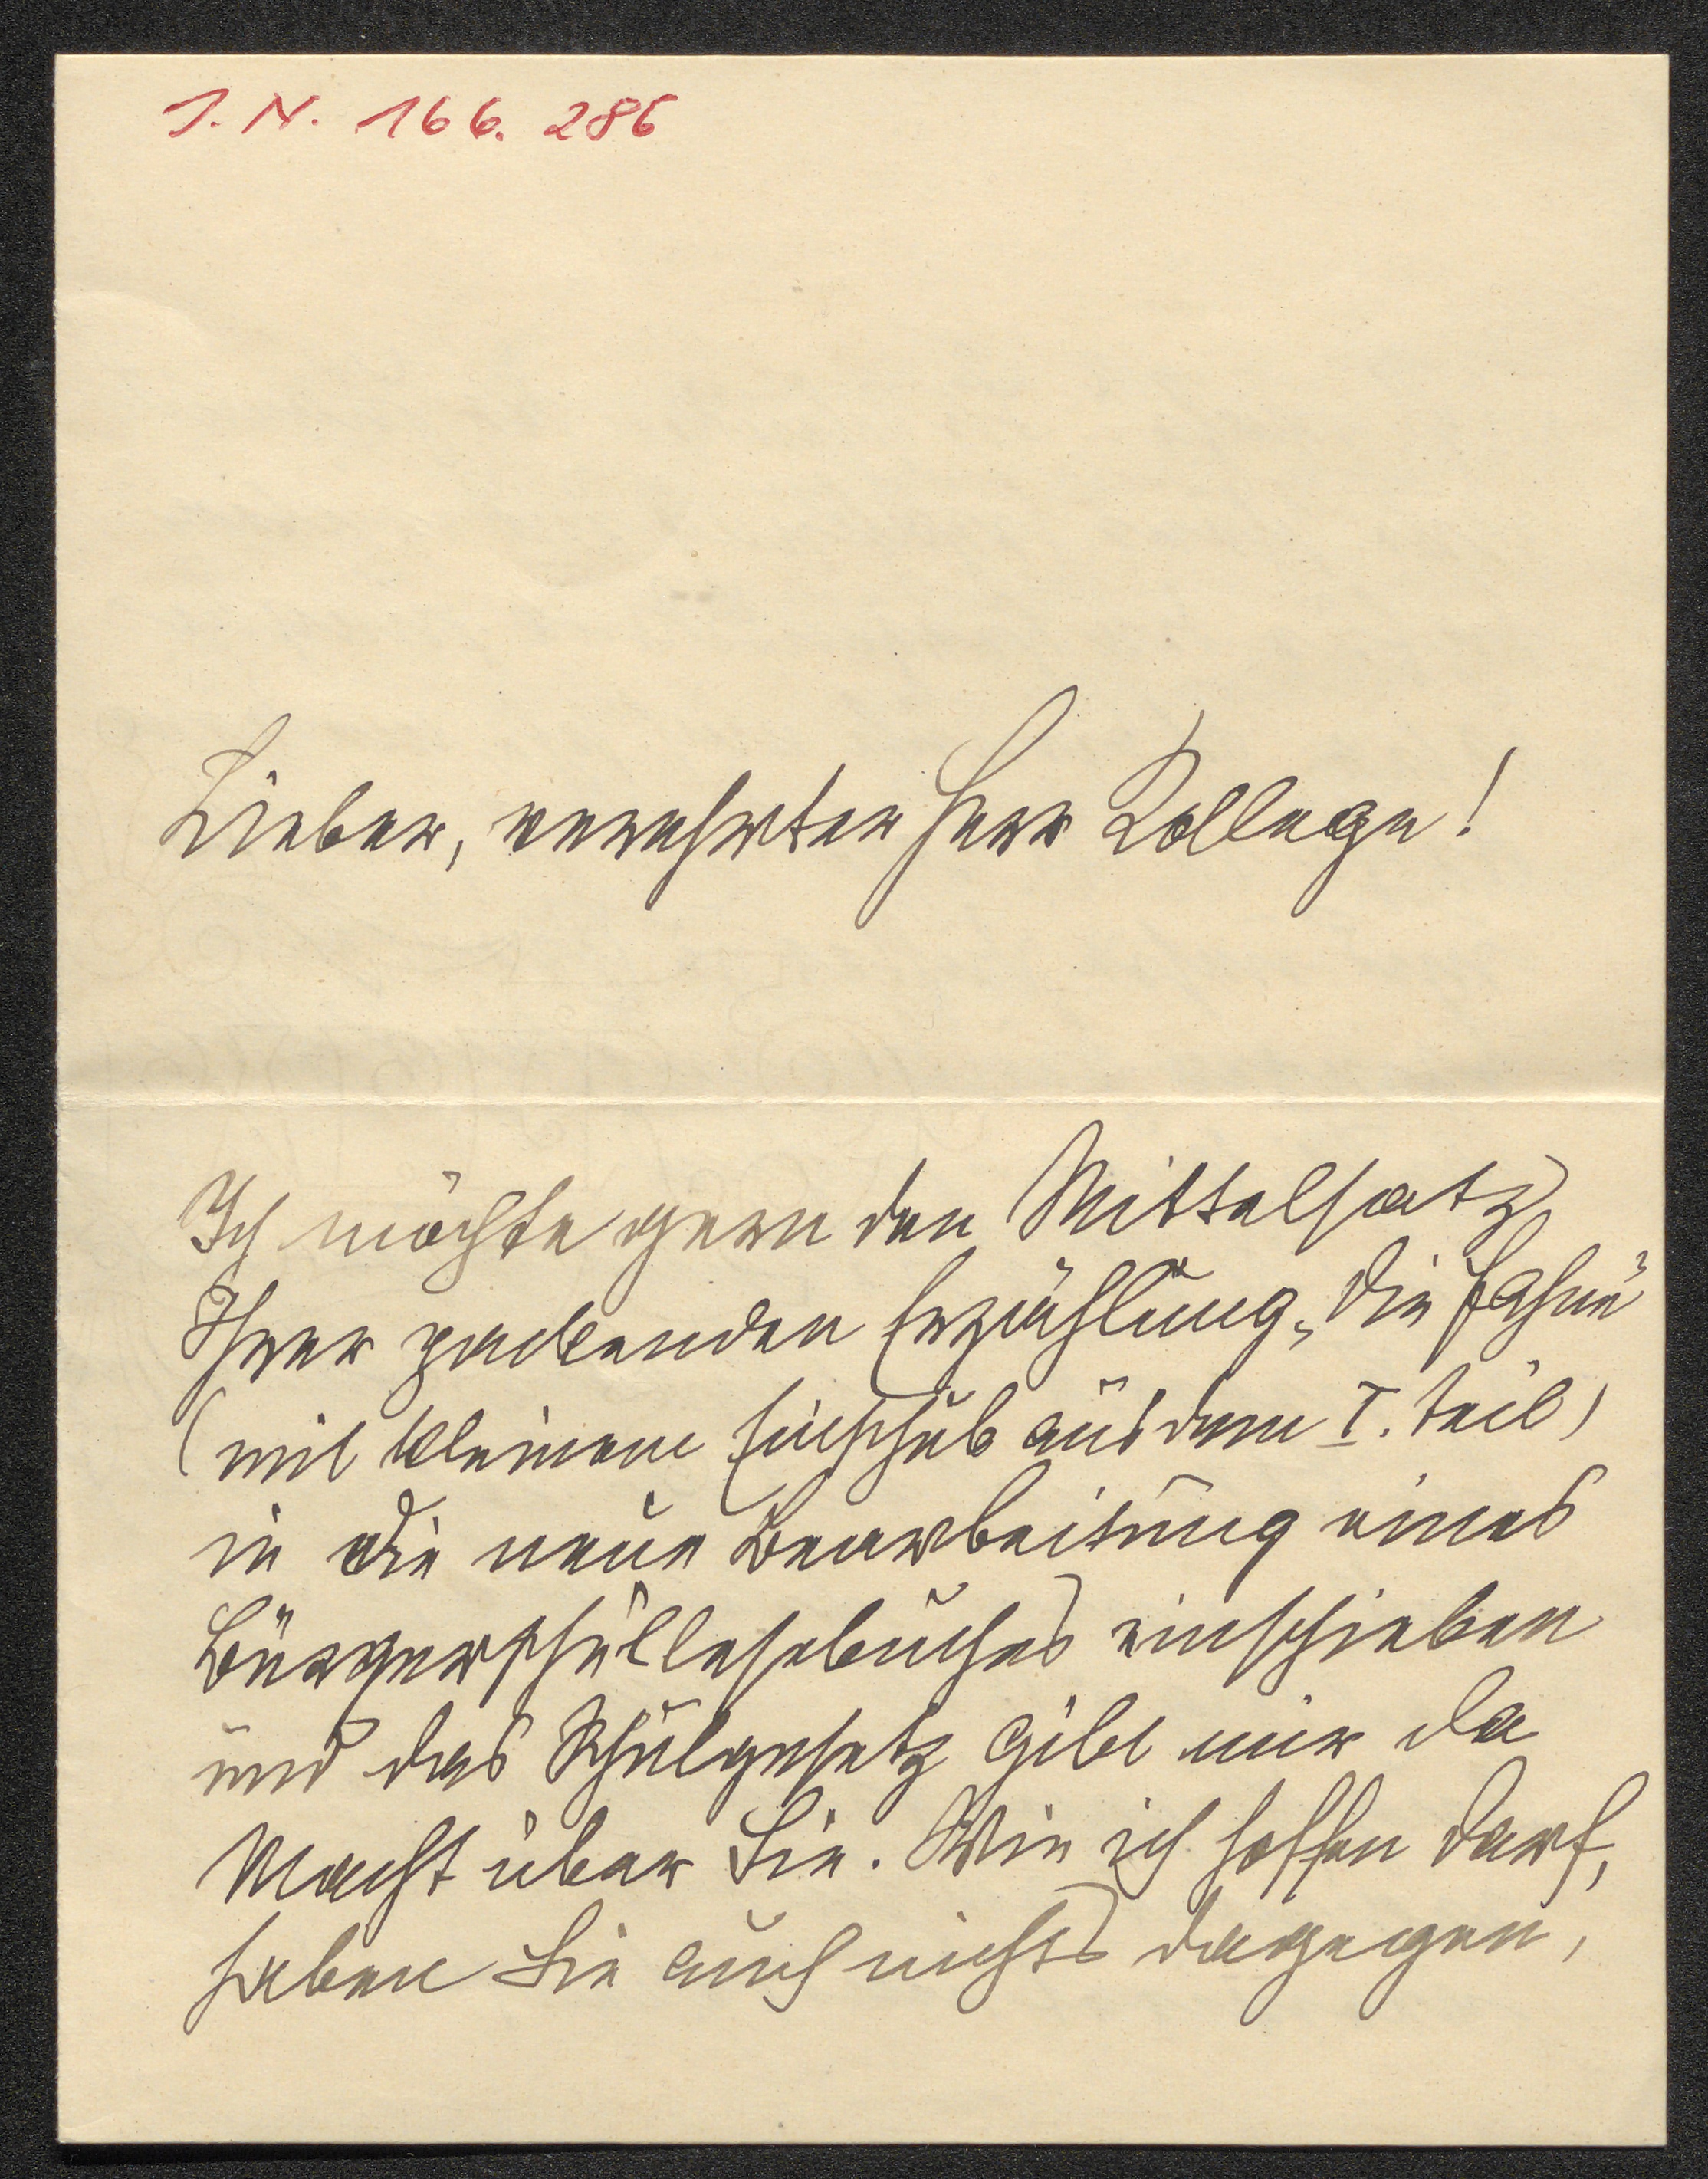 J. N. 166.286
Lieber, verehrter Herr Kollege!
Ich möchte gern den Mittelsatz
Ihrer packenden Erzählung „Die Fahne“
(mit kleinem Einschub aus dem I. Teil)
in die neue Bearbeitung eines
Bürgerschullesebuches einschieben
und das Schulgesetz gibt mir da
Macht über Sie. Wie ich hoffen darf,
haben Sie auch nichts dagegen,